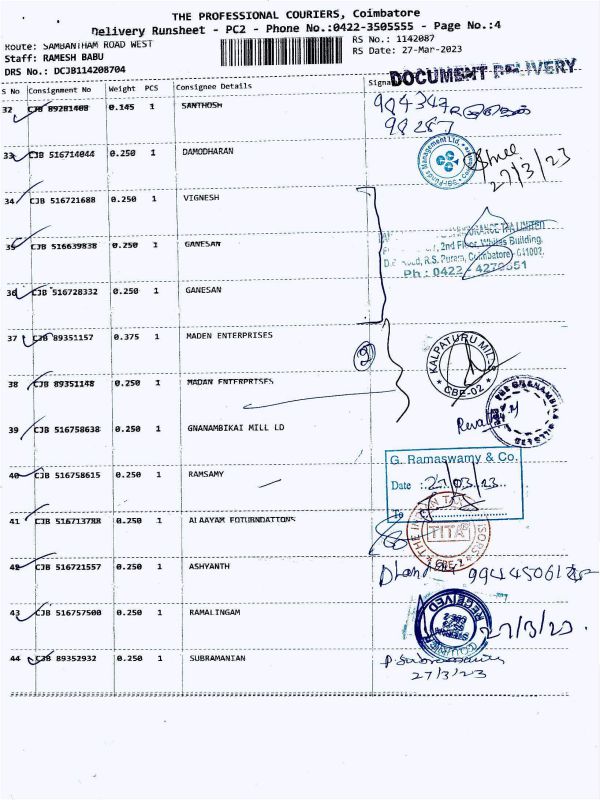 THE PROFESSIONAL COURIERS, Coimbatore
Delivery Runsheet - PC2 - Phone No.:0422-3505555 - Page No.:4
Route: SAMBANTHAM ROAD WEST
RS No.: 1142087
Staff: RAMESH BABU
RS Date: 27-Mar-2023
DRS No.: DCJB114208704
S No Consignment No Weight PCS Consignee Details
DOCUMENT DELIVERY
32 CJB 89281408 0.145 1 SANTHOSH
984347
98287
33 CJB 516714044 0.250 1 DAMODHARAN
Management Ltd.
27/3/23
34 CJB 516721688 0.250 1 VIGNESH
35 CJB 516639838 0.250 1 GANESAN
INSURANCE TPA LIMITED
2nd Floor, Whites Building,
Road, R.S. Puram, Coimbatore - 641002.
Ph : 0422 - 4270551
36 CJB 516728332 0.250 1 GANESAN
37 CJB 89351157 0.375 1 MADEN ENTERPRISES
KALPATURU MILLS
CBE-02
38 CJB 89351148 0.250 1 MADAN ENTERPRISES
39 CJB 516758638 0.250 1 GNANAMBIKAI MILL LD
40 CJB 516758615 0.250 1 RAMSAMY
G. Ramaswamy & Co.
Date : 27/03/23
To
41 CJB 516713788 0.250 1 ALAAYAM FOTURNDATIONS
TITA
CBE-2
42 CJB 516721557 0.250 1 ASHYANTH
43 CJB 516757500 0.250 1 RAMALINGAM
RECEIVED
27/3/23.
44 CJB 89352932 0.250 1 SUBRAMANIAN
P. Subramanian
27/3/23